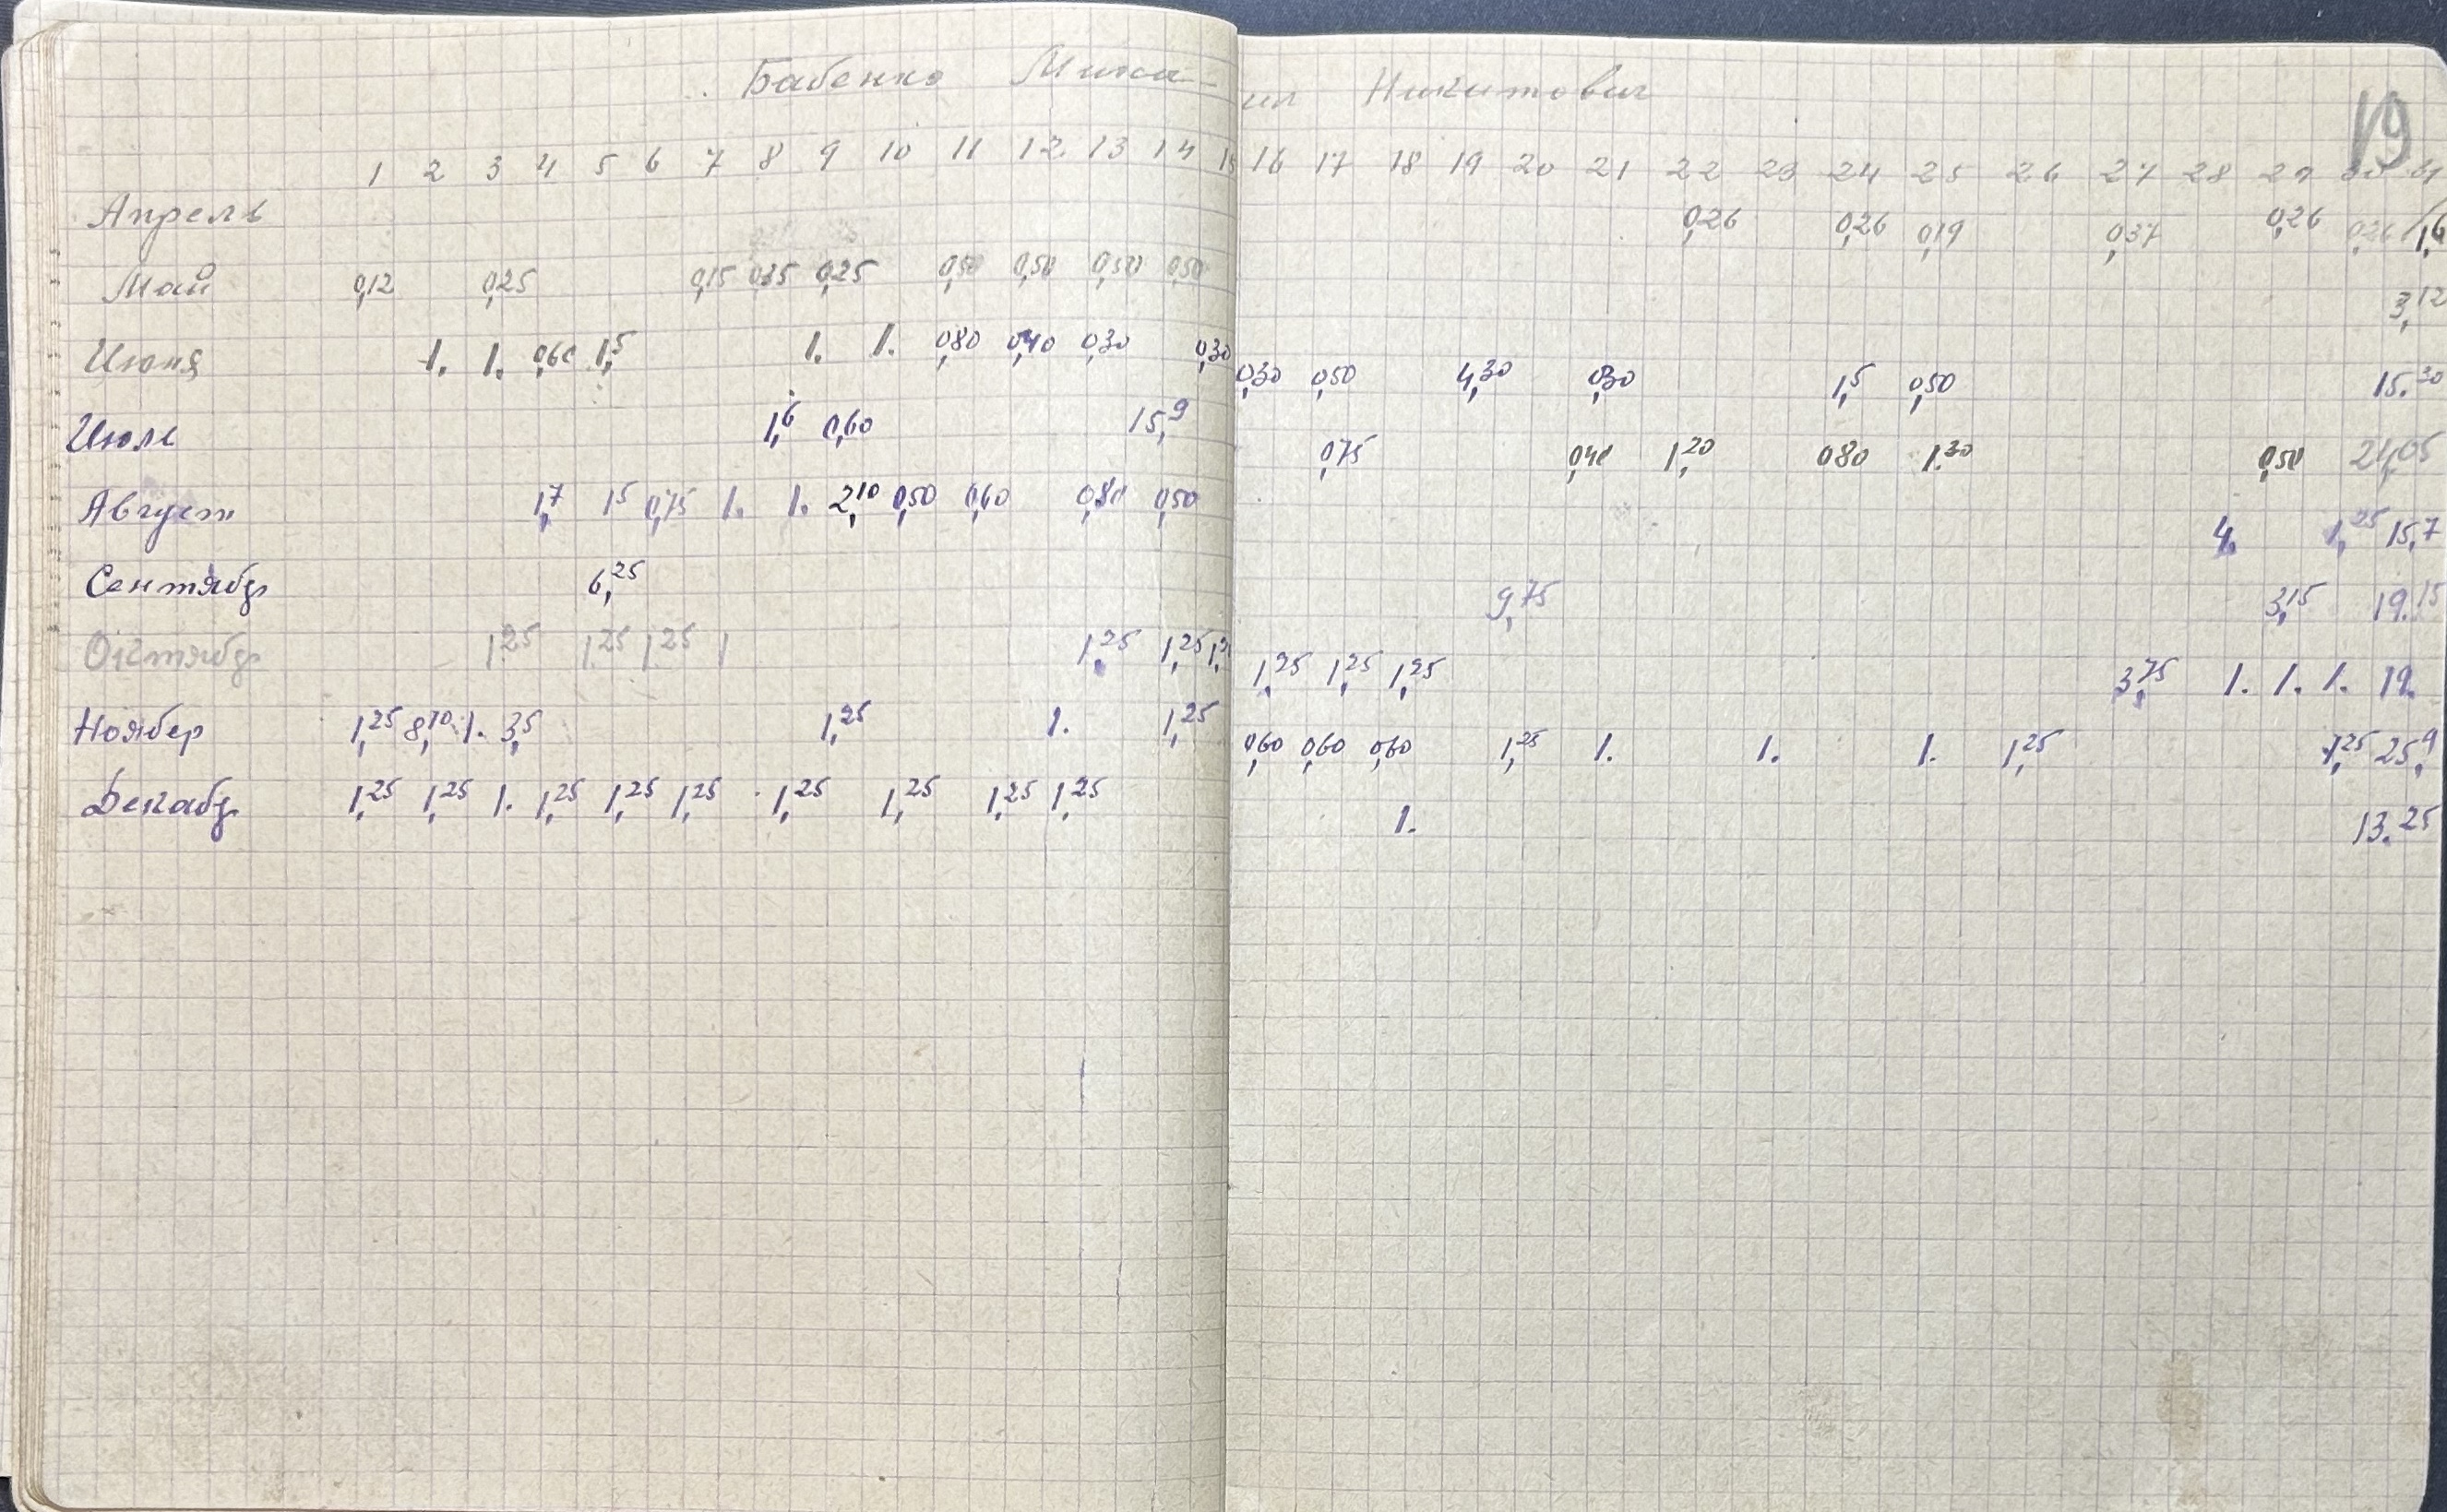 Бабенко Михаил Никитович
19
1 2 3 4 5 6 7 8 9 10 11 12 13 14 15 16 17 18 19 20 21 22 23 24 25 26 27 28 29 30 31
Апрель 0,26 0,26 0,19 0,37 0,26 0,26 1,6
Май 0,12 0,25 0,15 0,35 0,25 0,50 0,50 0,50 0,50 3,12
Июня 1. 1. 0,60 1,5 1. 1. 0,80 0,40 0,30 0,30 0,30 0,50 4,30 0,30 1,5 0,50 15.30
Июль 1,6 0,60 15,9 0,75 0,40 1,20 0,80 1.30 0,50 24,05
Август 1,7 1 5 0,75 1. 1. 2,10 0,50 0,60 0,80 0,50 4. 1,25 15,7
Сентябр 6,25 9,75 3,15 19.15
Октябр 1,25 1,25 1,25 1 1,25 1,25 1,25 1,25 1,25 3,75 1. 1. 1. 19.
Ноябер 1,25 8,10 1. 3,5 1,25 1. 1,25 0,60 0,60 0,60 1,25 1. 1. 1. 1,25 1,25 25,9
Декабр 1,25 1,25 1. 1,25 1,25 1,25 1,25 1,25 1,25 1,25 1. 13.25